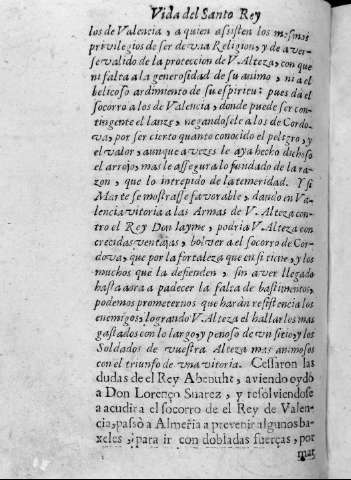 Vida del Santo Rey
los de Valencia, a quien assisten los mesmos
privilegios de ser de una Religion, y de aver-
se valido de la proteccion de V. Alteza, con que
ni falta a la generosidad de su animo, ni a el
belicoso ardimiento de su espiritu: pues da el
socorro a los de Valencia, donde puede ser con-
tingente el lanze, negandosele a los de Cordo-
va, por ser cierto quanto conocido el peligro, y
el valor, aunque a vezes le aya hecho dichoso
el arrojo, mas le assegura lo fundado de la ra-
zon, que lo intrepido de la temeridad. Y si
Marte se mostrasse favorable, dando en Va-
lencia vitoria a las Armas de V. Alteza con-
tro el Rey Don Iayme, podria V. Alteza con
crecidas ventajas, bolver a el socorro de Cor-
dova, que por la fortaleza que en si tiene, y los
muchos que la defienden, sin aver llegado
hasta aora a padecer la falta de bastimentos,
podemos prometernos que haràn resistencia los
enemigos, logrando V. Alteza el hallarlos mas
gastados con lo largo, y penoso de un sitio, y los
Soldados de vuestra Alteza mas animosos
con el triunfo de una vitoria. Cessaron las
dudas de el Rey Abenuht, aviendo oydo
a Don Lorenço Suarez, y resolviendose
a acudir a el socorro de el Rey de Valen-
cia, passò a Almeria a prevenir algunos ba-
xeles, para ir con dobladas fuerças, por
mar